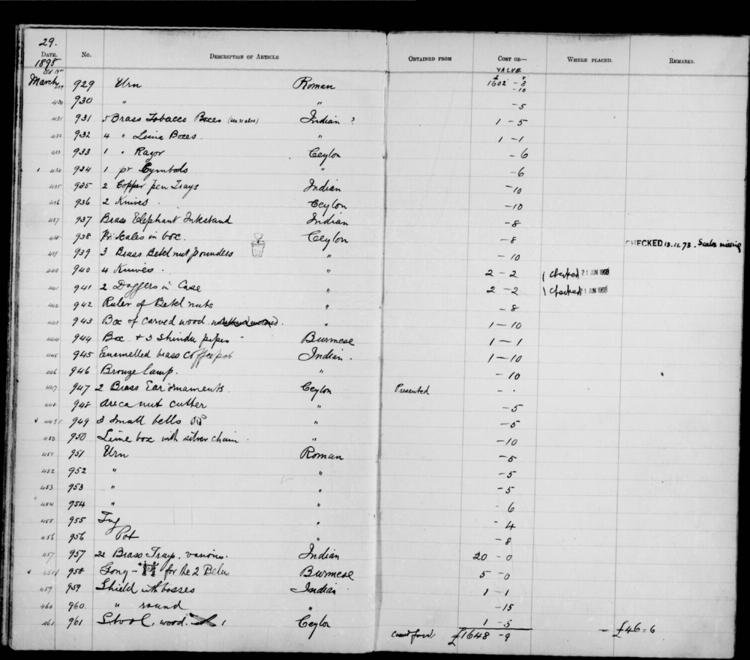 29.
DATE. No. DESCRIPTION OF ARTICLE OBTAINED FROM COST OR VALUE WHERE PLACED. REMARKS.
1898
March 929 Urn Roman £1602 - 8
- 10
930 " " - 5
931 5 Brass Tobacco Boxes Indian ? 1 - 5
932 4 " Lime Boxes " 1 - 1
933 1 " Razor Ceylon - 6
934 1 pr Cymbols " - 6
935 2 Copper pen Trays Indian - 10
936 2 Knives. Ceylon - 10
937 Brass Elephant Inkstand Indian - 8
938 Pr Scales in box. Ceylon - 8 CHECKED 13.11.73. Scales missing
939 3 Brass Betel nut pounders " - 10
940 4 Knives. " 2 - 2 (Checked 21 JUN
941 2 Daggers in Case " 2 - 2 (Checked 21 JUN
942 Ruler of Betel nuts " - 8
943 Box of carved wood. " 1 - 10
944 Box & 3 pipes Burmese 1 - 1
945 Enamelled brass Coffee pot Indian. 1 - 10
946 Bronze lamp. " - 10
947 2 Brass Ear ornaments Ceylon Presented - .
948 areca nut cutter " - 5
949 3 small bells " - 5
950 Lime box with silver chain. " - 10
951 Urn Roman - 5
952 " " - 5
953 " " - 5
954 " " - 6
955 " - 4
956 Pot " - 8
957 Brass Trays. various. Indian 20 - 0
958 Gong - for the 2 Burmese 5 - 0
959 Shield with bosses Indian 1 - 1
960. " round " - 15
961 Stool. wood. 1 Ceylon 1 - 5
Card ford £1648 - 9 - £46 = 6